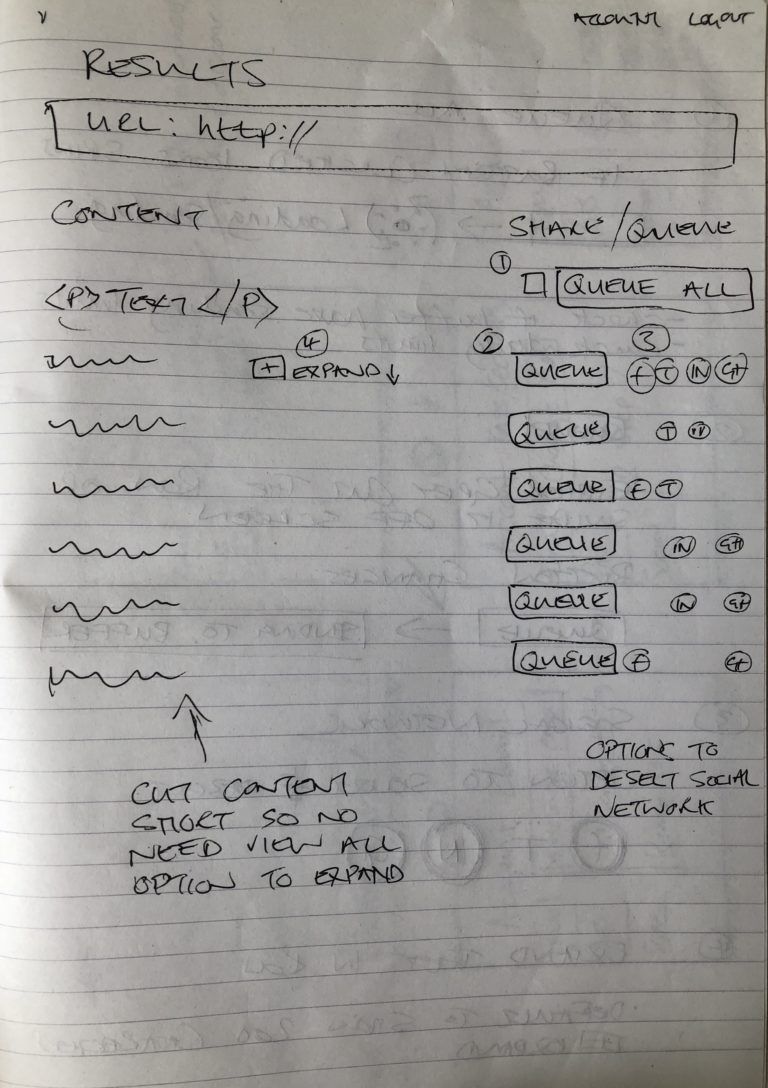 ACCOUNT LOGOUT
RESULTS
URL: http://
CONTENT
SHARE/QUEUE
1 QUEUE ALL
<P> TEXT </P>
4 2 3
+ EXPAND ↓ QUEUE F T IN G+
QUEUE T IN
QUEUE F T
QUEUE IN G+
QUEUE IN G+
QUEUE F G+
OPTIONS TO
DESELT SOCIAL
NETWORK
CUT CONTENT
SHORT SO NO
NEED VIEW ALL
OPTION TO EXPAND